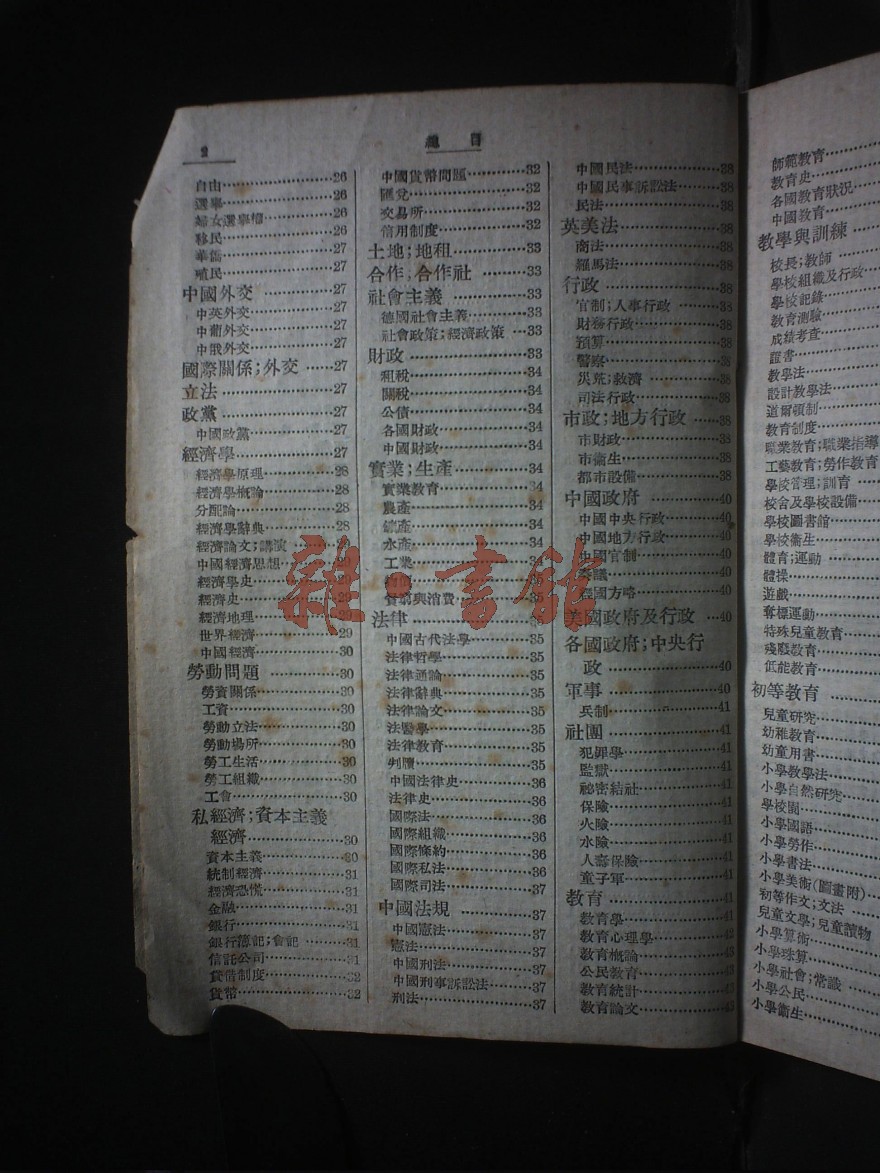 2
總目
自由 26
選舉 26
婦女選舉權 26
移民 26
華僑 27
殖民 27
中國外交 27
中英外交 27
中葡外交 27
中俄外交 27
國際關係;外交 27
立法 27
政黨 27
中國政黨 27
經濟學 27
經濟學原理 28
經濟學概論 28
分配論 28
經濟學辭典 28
經濟論文;講演
中國經濟思想
經濟學史 29
經濟史 29
經濟地理 29
世界經濟 29
中國經濟 30
勞動問題 30
勞資關係 30
工資 30
勞動立法 30
勞動場所 30
勞工生活 30
勞工組織 30
工會 30
私經濟;資本主義
經濟 30
資本主義 30
統制經濟 31
經濟恐慌 31
金融 31
銀行 31
銀行簿記;會記 31
信託公司 31
貸借制度 32
貨幣 32
中國貨幣問題 32
匯兌 32
交易所 32
信用制度 32
土地;地租 33
合作;合作社 33
社會主義 33
德國社會主義 33
社會政策;經濟政策 33
財政 33
租稅 34
關稅 34
公債 34
各國財政 34
中國財政 34
實業;生產 34
實業教育 34
農產 34
鑛產 34
水產 34
工業
35
35
法律 35
中國古代法學 35
法律哲學 35
法律通論 35
法律辭典 35
法律論文 35
法醫學 35
法律教育 35
判牘 35
中國法律史 36
法律史 36
國際法 36
國際組織 36
國際條約 36
國際私法 36
國際司法 37
中國法規 37
中國憲法 37
憲法 37
中國刑法 37
中國刑事訴訟法 37
刑法 37
中國民法 38
中國民事訴訟法 38
民法 38
英美法 38
商法 38
羅馬法 38
行政 38
官制;人事行政 38
財務行政 38
預算 38
警察 38
災荒;救濟 38
司法行政 38
市政;地方行政 38
市財政 38
市衞生 38
都市設備 38
中國政府 40
中國中央行政 40
中國地方行政 40
中國官制 40
奏議 40
經國方略 40
美國政府及行政 40
各國政府;中央行
政 40
軍事 40
兵制 41
社團 41
犯罪學 41
監獄 41
祕密結社 41
保險 41
火險 41
水險 41
人壽保險 41
童子軍 41
教育 41
教育學 41
教育心理學 42
教育概論 43
公民教育 43
教育統計 43
教育論文 43
師範教育
教育史
各國教育狀況
中國教育
教學與訓練
校長;教師
學校組織及行政
學校記錄
教育測驗
成績考查
證書
教學法
設計教學法
道爾頓制
教育制度
職業教育;職業指導
工藝教育;勞作教育
學校管理;訓育
校舍及學校設備
學校圖書館
學校衞生
體育;運動
體操
遊戲
奪標運動
特殊兒童教育
殘廢教育
低能教育
初等教育
兒童研究
幼稚教育
幼童用書
小學教學法
小學自然研究
學校園
小學國語
小學勞作
小學書法
小學美術(圖畫附)
初等作文;文法
兒童文學;兒童讀物
小學算術
小學珠算
小學社會;常識
小學公民
小學衞生
雜·書館